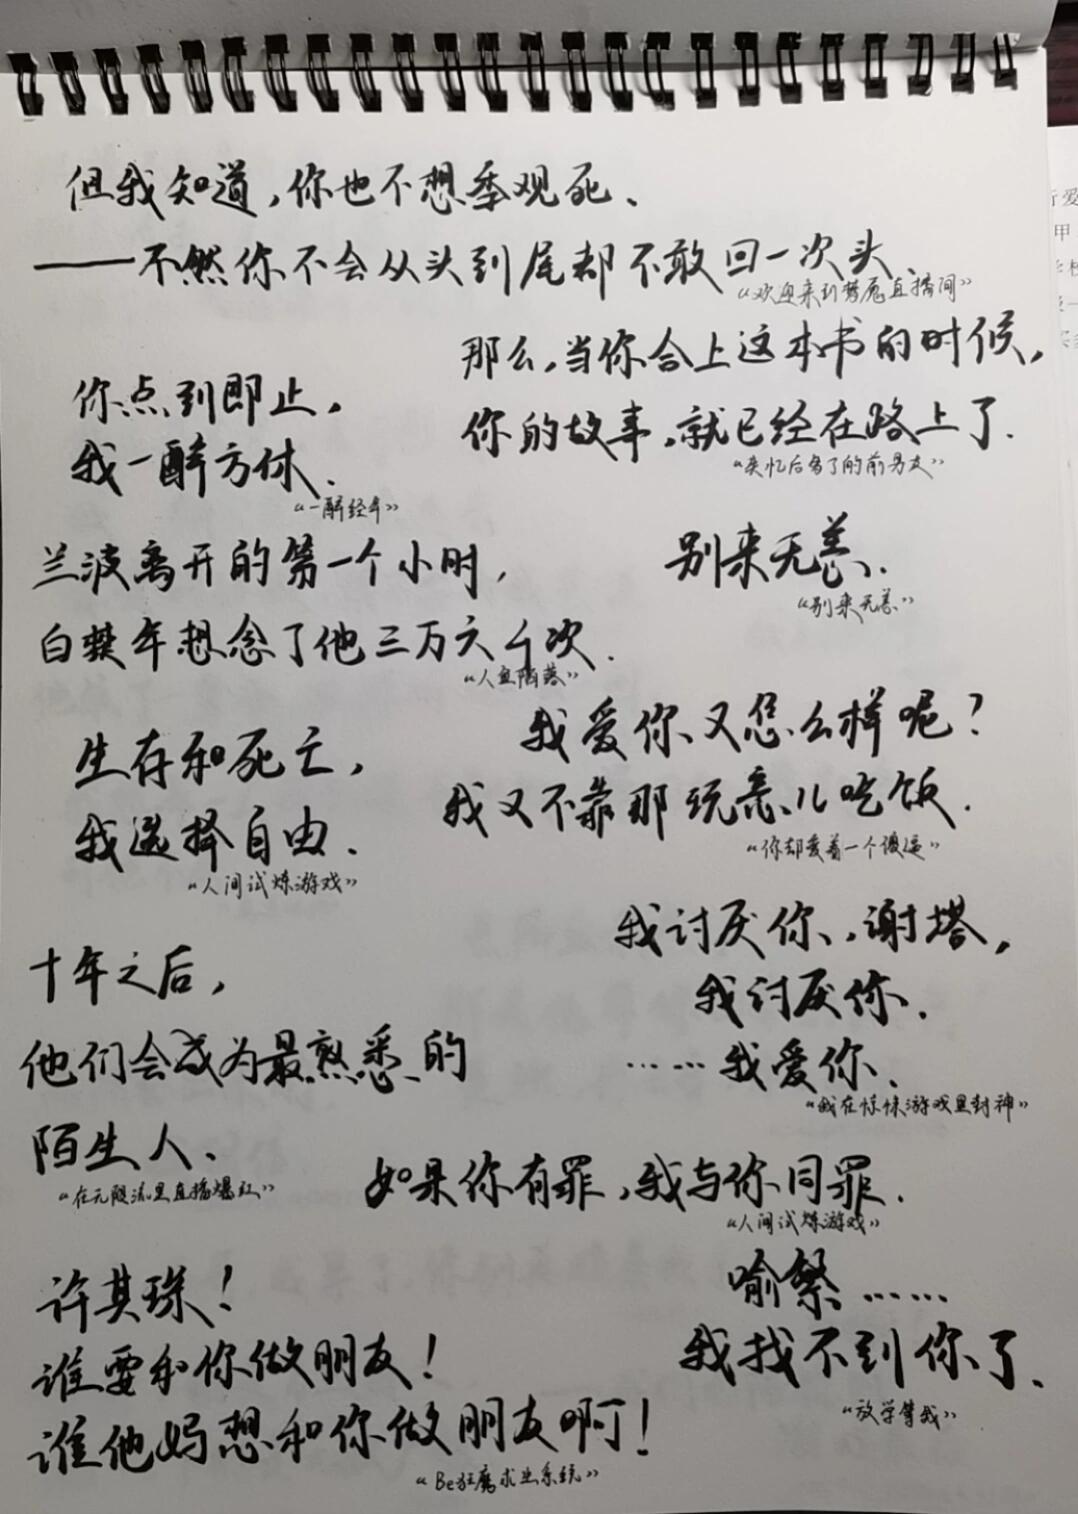 但我知道,你也不想季观死、
——不然你不会从头到尾都不敢回一次头、
“欢迎来到梦魇直播间”
那么,当你合上这本书的时候,
你的故事,就已经在路上了.
“失忆后多了的前男友”
你点到即止,
我一醉方休、
“一醉经年”
兰波离开的第一个小时,
白楚年想念了他三万六千次.
“人鱼陷落”
别来无恙、
“别来无恙”
生存和死亡,
我选择自由.
“人间试炼游戏”
我爱你又怎么样呢?
我又不靠那玩意儿吃饭.
“你却爱着一个傻逼”
我讨厌你,谢塔,
我讨厌你.
……我爱你、
“我在惊悚游戏里封神”
十年之后,
他们会成为最熟悉的
陌生人、
“在无限流里直播爆红”
如果你有罪,我与你同罪.
“人间试炼游戏”
许其琛!
谁要和你做朋友!
谁他妈想和你做朋友啊!
“Be狂魔求生系统”
喻繁……
我找不到你了、
“放学等我”